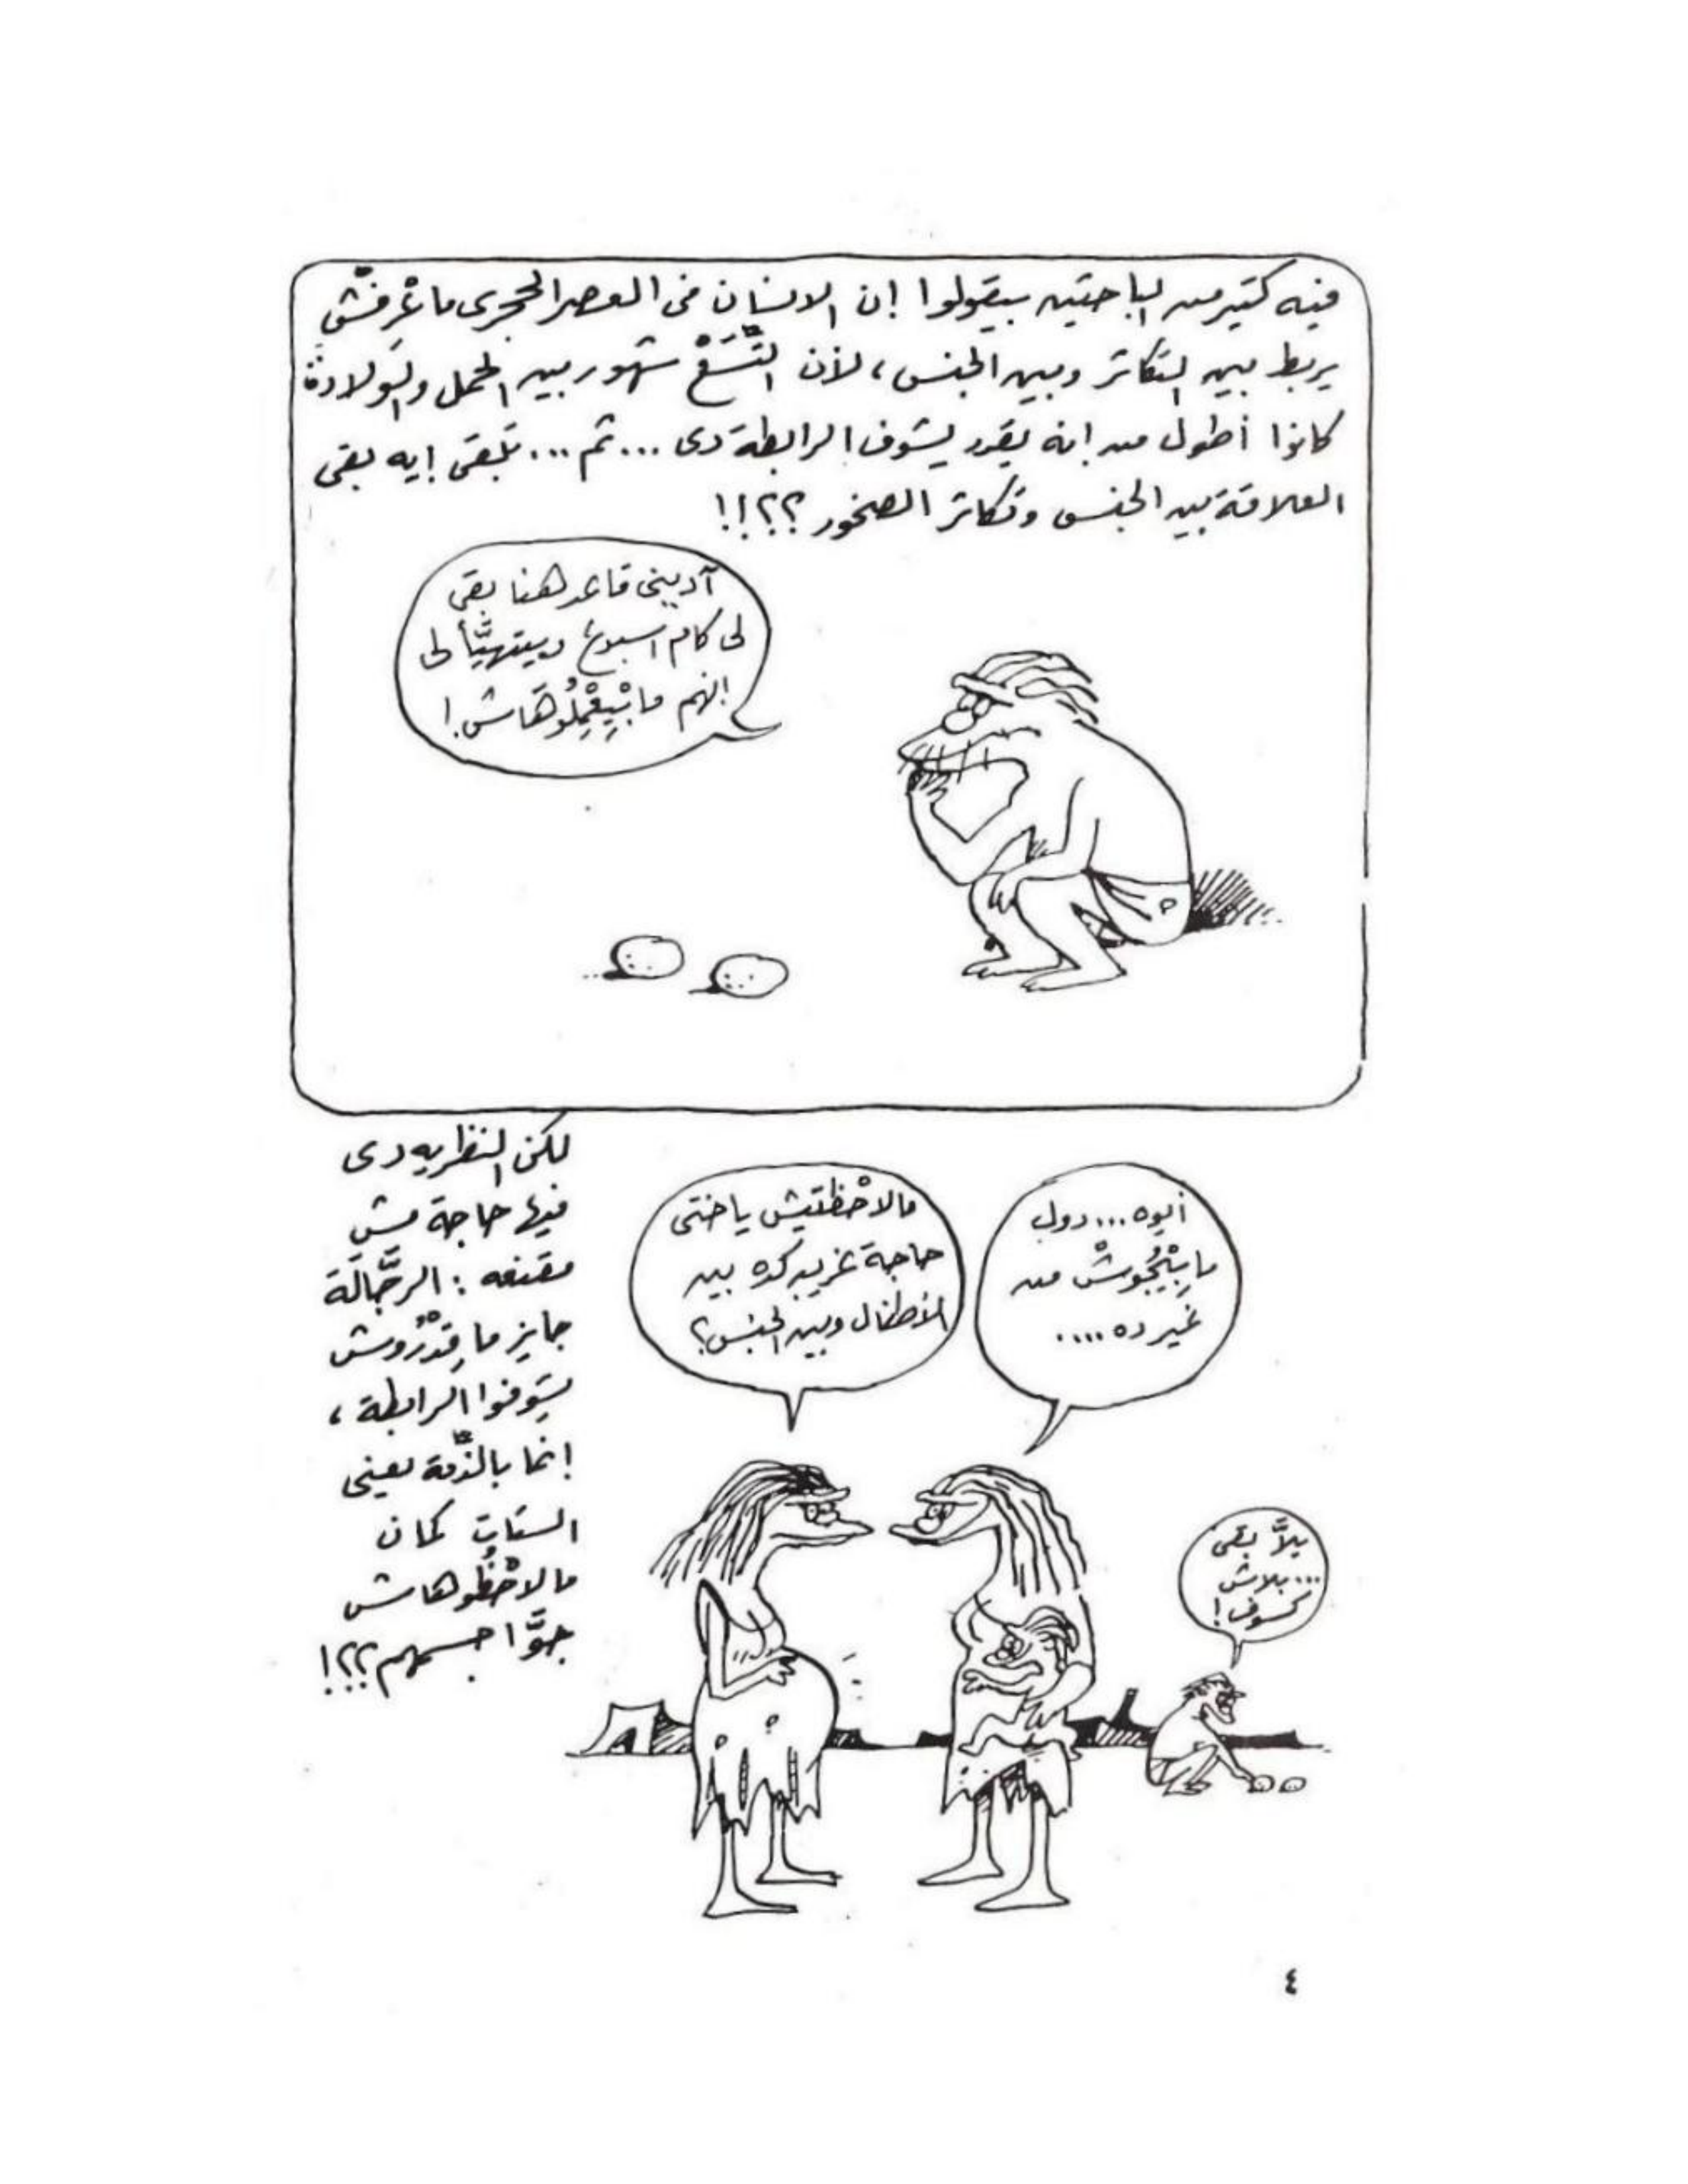 فيه كتير من الباحثين بيقولوا إن الانسان فى العصر الحجرى ما عْرِفْش
يربط بين التكاثر وبين الجنس، لأن التِّسَعْ شهور بين الحمل والولادة
كانوا أطول من انه يقدر يشوف الرابطة دى ... ثم ... تبقى إيه بقى
العلاقة بين الجنس وتكاثر الصخور ؟؟!!
آدينى قاعد هنا بقى
لى كام اسبوع وبيتهيَّأ لى
انهم ما بْيِعْمِلُوهَاش!
لكن النظريه دى
فيها حاجة مش
مقنعه : الرجَّالَة
جايز ما قِدْرُوش
يشوفوا الرابطة،
إنما بالذِّمة يعنى
الستات كمان
ما لاحْظُوهاش
جوَّا جسمهم ؟؟!
أيوه ... دول
ما بْيِيجُوشْ من
غير ده ....
مالاحْظتيش ياختى
حاجة غريب كده بين
الأطفال وبين الجنس؟
يلاَّ بقى
... بلاش
كسوف!
٤